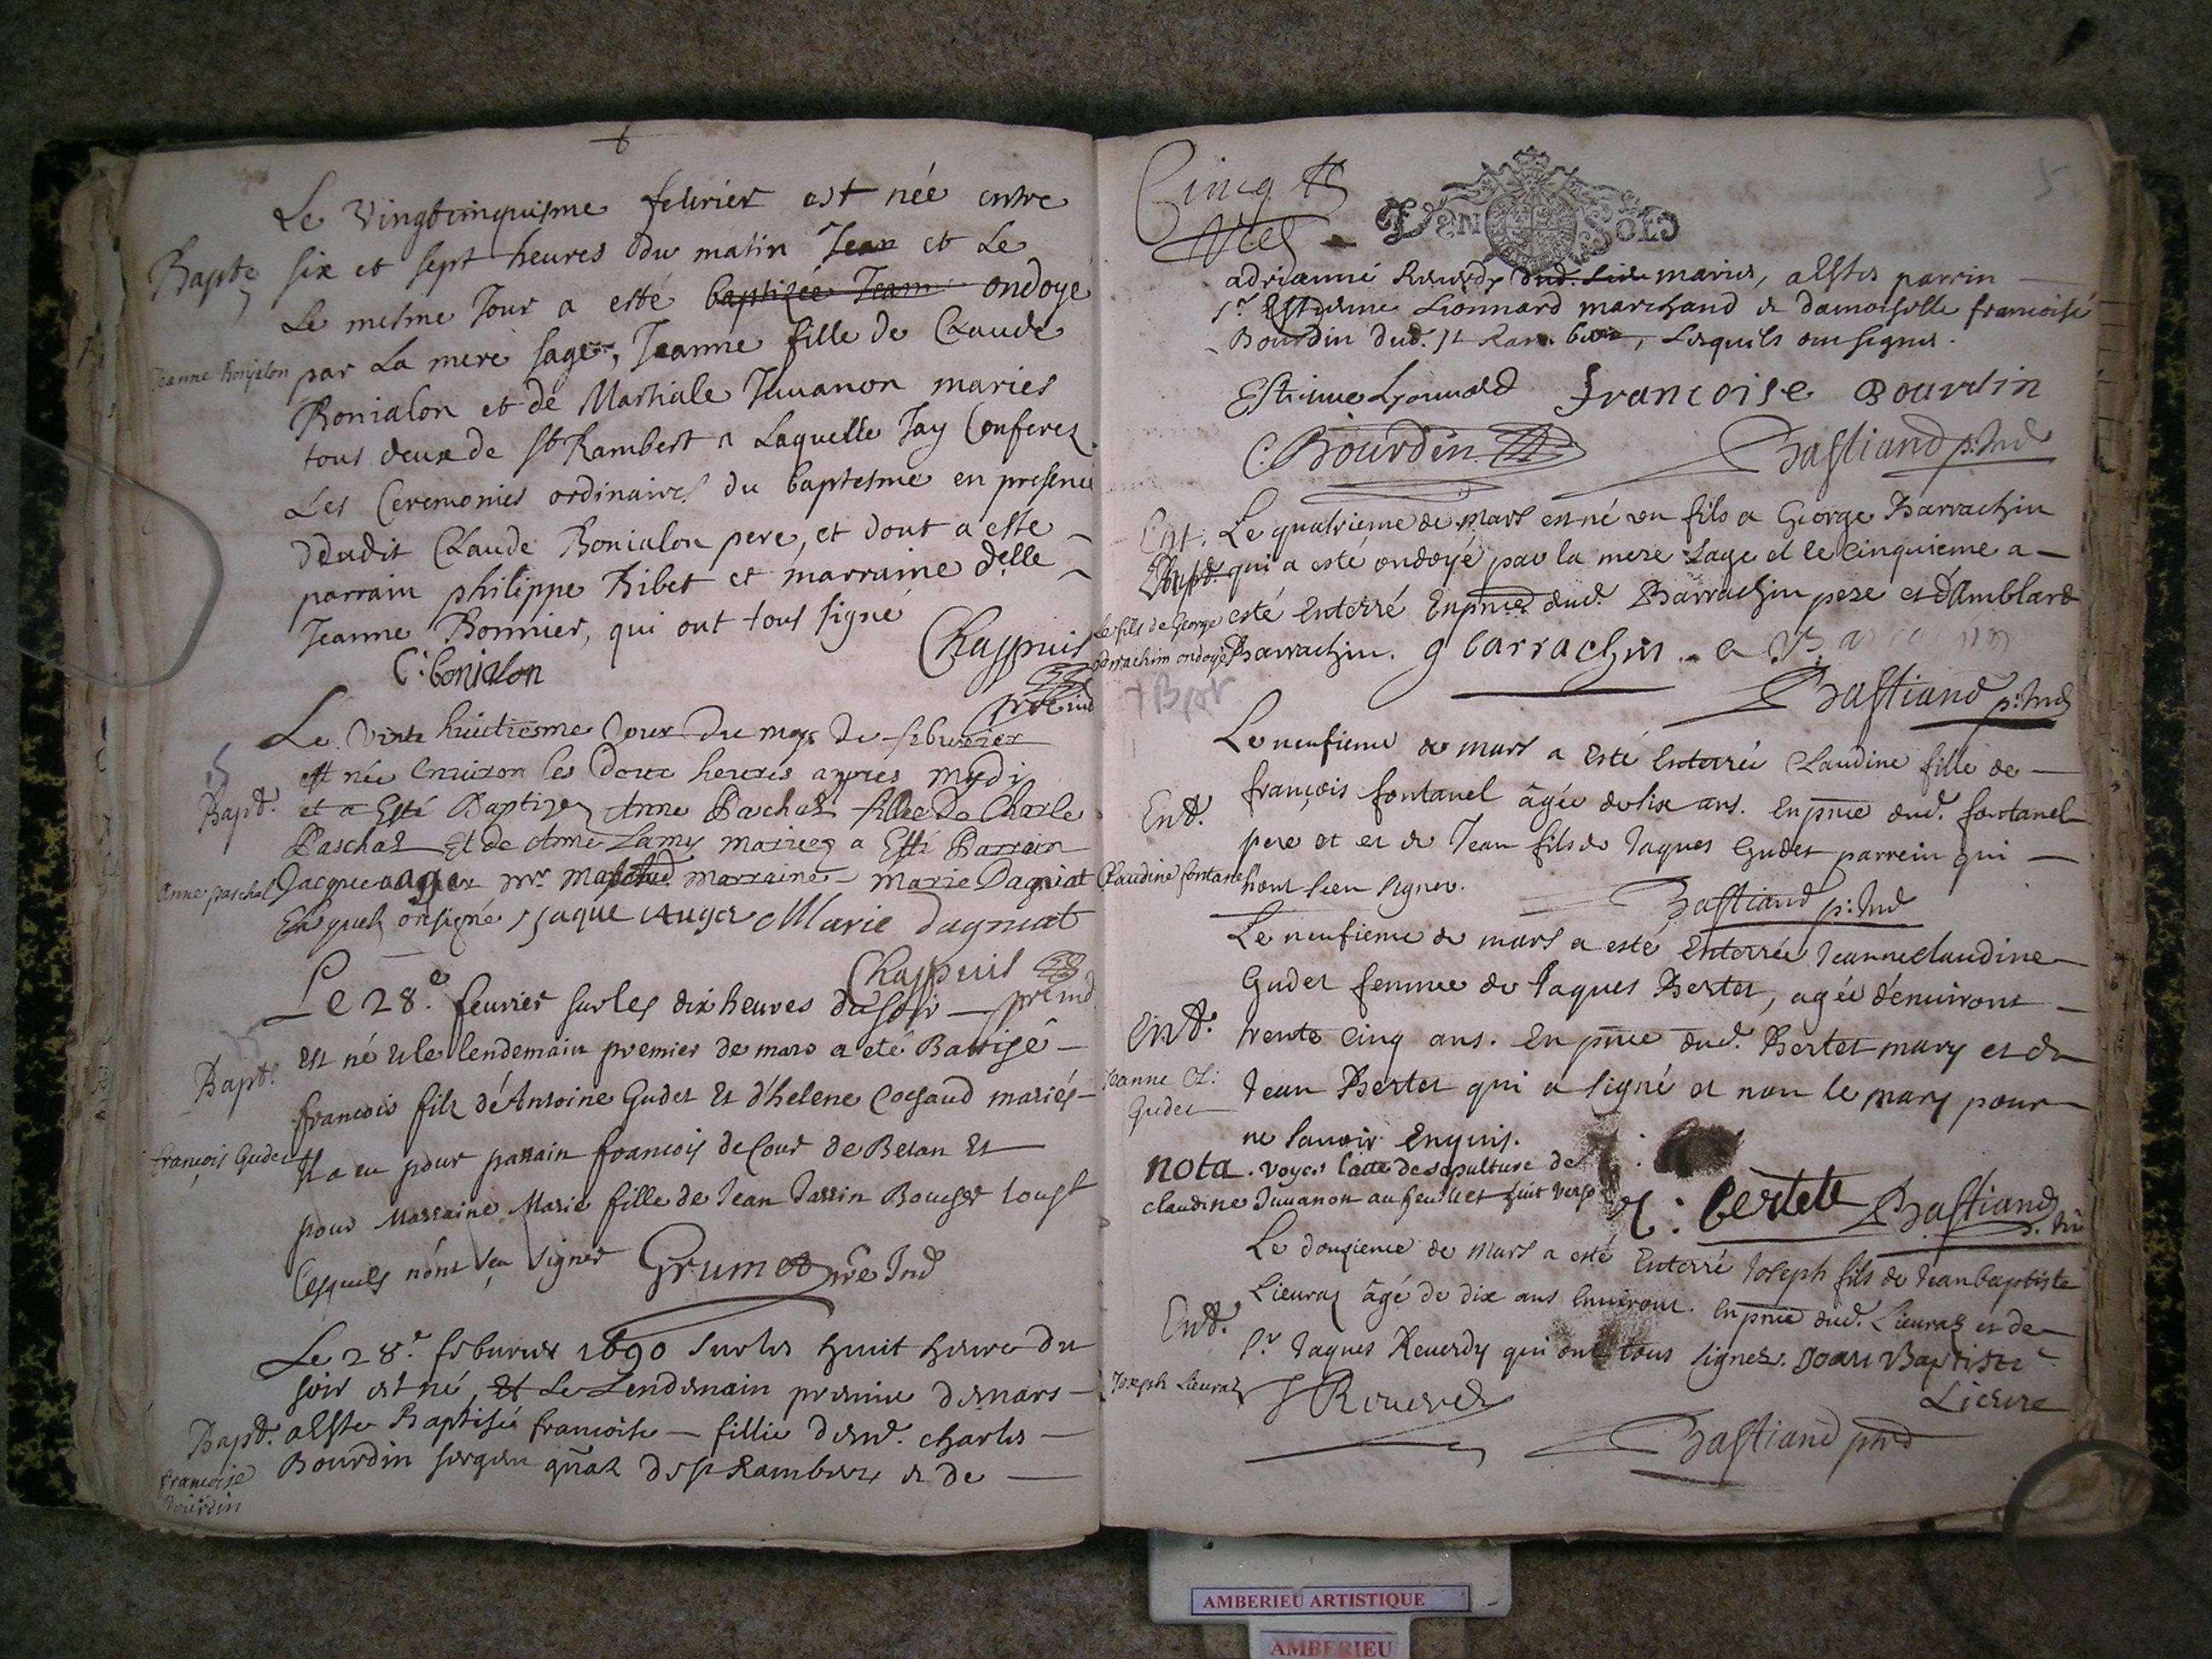 Le Vingtcinquisme febvrier est née entre
Bapte six et sept heures du matin Jean et Le
Le mesme Jour a esté baptizée Jeanne ondoye
par La mere sage, Jeanne fille de Claude
Jeanne Bonjalon
Bonialon et de Martiale Juuanon mariés
tous deux de St Rambert a Laquelle Jay Conferez
Les Ceremonies ordinaires du baptesme en presence
dudit Claude Bonialon pere, et dont a esté
parrain philippe Ribet et marraine delle
Jeanne Bonnier, qui ont tous signé
C: bonialon
Chappuis
Le Vinte huictiesme Jour Du moys De feburier
est née Enuiron les Deux heures appres mydi
Bapt. et a Esté Baptizez Anne Paschal fille De Charle
Paschal Et de Anne Lamy mariez a Esté Parrain
Anne paschal
Jacque auger mr marchd marraine Marie Dagniat
Lesquels onsigné Jaque Auger Marie dagniat
Chappuis
Le 28e feurier sur les dix heures du soir
est né et le lendemain premier de mars a eté Batisé
Bapt.
francois filz d'Antoine Gudet Et d'helene Cossaud mariés
françois Gudet
Il a eu pour parrain francois de Cour de Betan Et
pour Marraine Marie fille de Jean Tarrin Boucher tous
Lesquels n'ont sçu signer Grumet pre Ind
Le 28e feburier 1690 Sur les huit heure du
soir est né Et Le Lendemain premie de mars
Bapt. a Este Baptisée francoise fillie de md. charles
francoise Bourdin
Bourdin sergen de St Rambert et de
5
Cinq
DEN SOLS
adrianne Reuerdy mariés, a Estés parrin
sr Estienne Lionnard marchand et damoiselle francoise
Bourdin dud. st Rambert, Lesquels on signés.
Estienne Lyonnard francoise Bourdin
C: Bourdin Bastiand p: Ind
Ent. Le quatrieme de mars est né un fils a George Barrachin
qui a esté ondoyé par la mere sage et le Cinquieme a
Le fils de George
esté Enterré En pnce dud. Barrachin pere et d'Amblard
Barrachin ondoyé
Barrachin. g barrachin
Bastiand p: Ind
Le neufieme de mars a esté Enterrée Claudine fille de
françois fontanel âgée de six ans. En pnce dud. fontanel
Ent.
pere et de Jean fils de Jaques Gudet parrein qui
Claudine fontanel
n'ont sceu signer.
Bastiand p: Ind
Le neufieme de mars a esté Enterrée Jeanne claudine
Gudet femme de Jaques Bertet, agée d'environt
Ent. trente cinq ans. En pnce dud. Bertet mary et de
Jeanne Cl: Gudet
Jean Bertet qui a signé et non le mary pour
ne sauoir Enquis.
nota. voyes l'acte de sepulture de
claudine Juuanon au feuillet huit verso
bertete Bastiand
Le douzieme de Mars a esté Enterré Joseph fils de Jean baptiste
Lieuraz âgé de dix ans Enuiront. En pnce dud. Lieuraz et de
Ent.
Sr Jaques Reuerdy qui ont tous signez. Joan Baptiste
Joseph Lieuraz
J Reuerdy
Lieure
Bastiand p Ind
AMBERIEU ARTISTIQUE
AMBERIEU